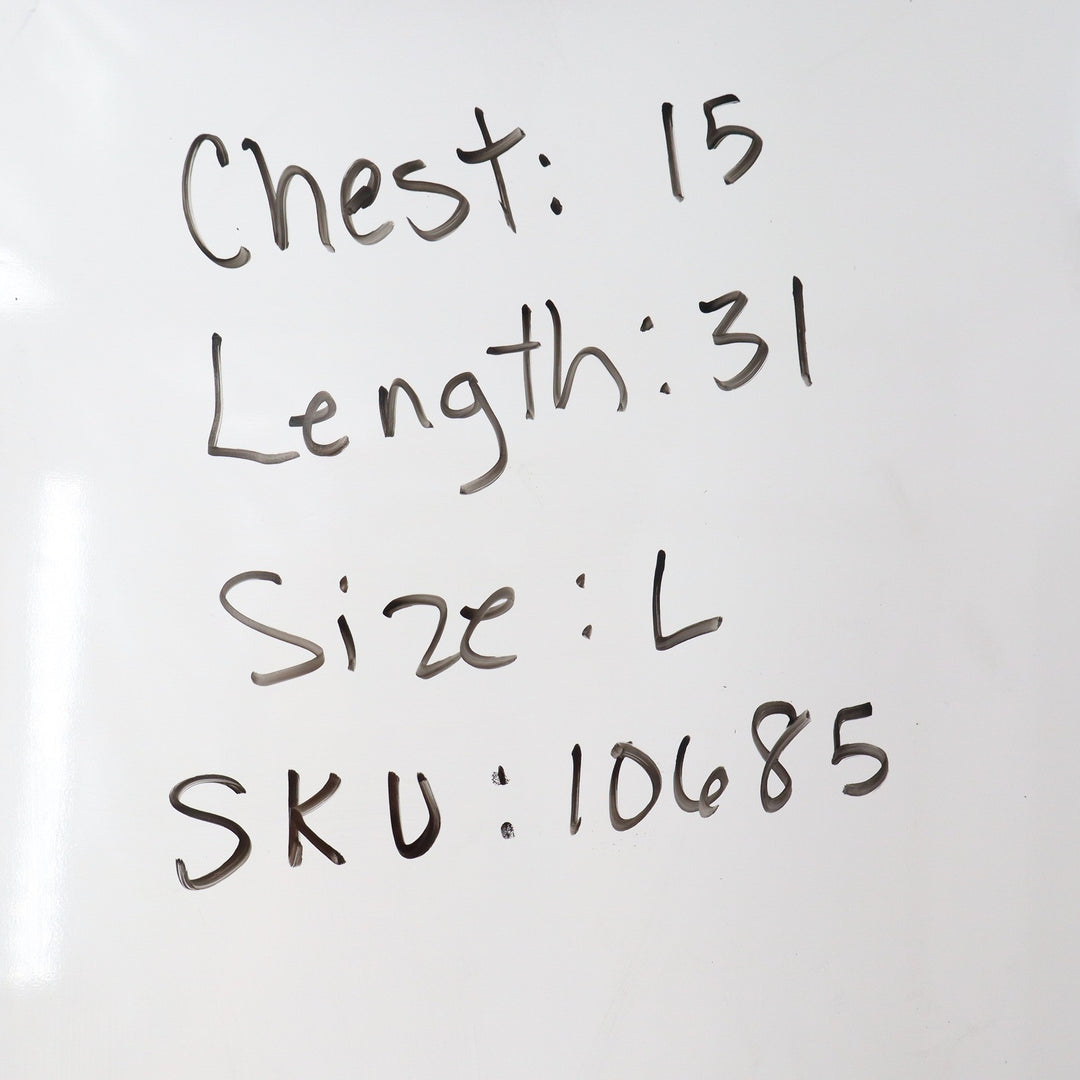 Chest: 15
Length: 31
Size: L
SKU: 10685